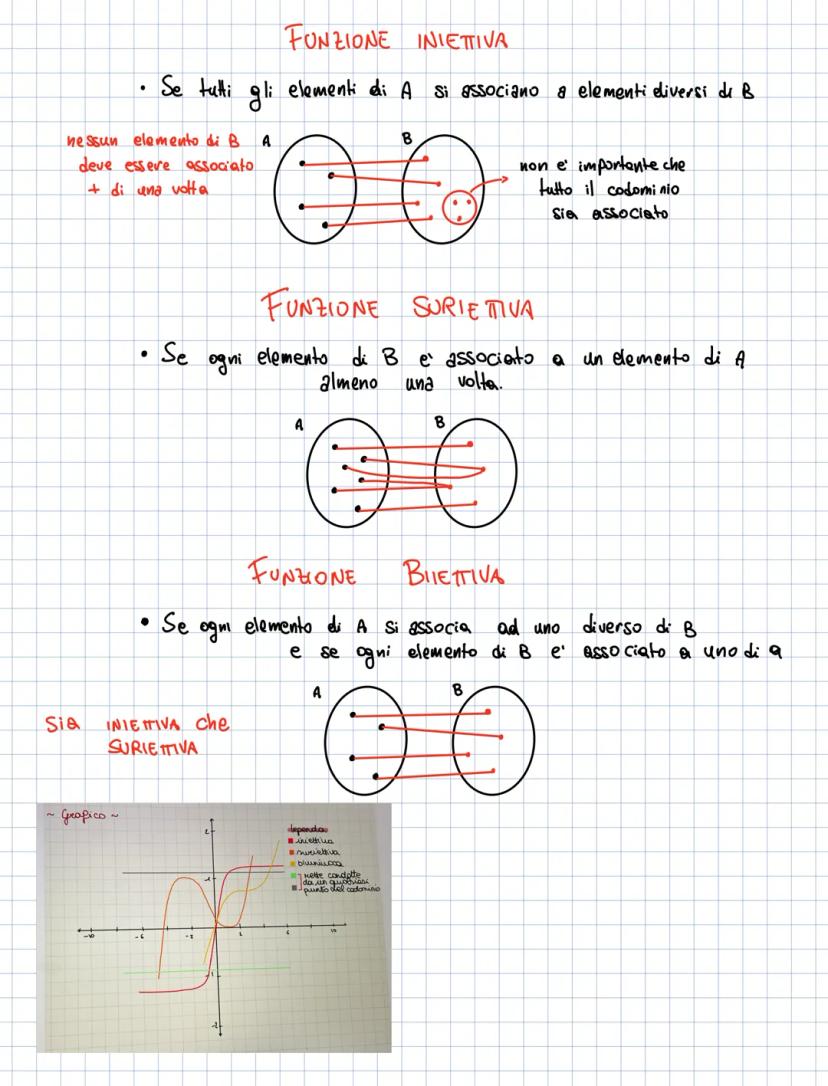 FUNZIONE INIETTIVA
• Se tutti gli elementi di A si associano a elementi diversi di B
nessun elemento di B
deve essere associato
+ di una volta
A B
non e' importante che
tutto il codominio
sia associato
FUNZIONE SURIETTIVA
• Se ogni elemento di B e' associato a un elemento di A
almeno una volta.
A B
FUNZIONE BIIETTIVA
• Se ogni elemento di A si associa ad uno diverso di B
e se ogni elemento di B e' associato a uno di a
A B
Sia INIETTIVA che
SURIETTIVA
~ Grafico ~
legenda
iniettiva
suriettiva
biunivoca
rette condotte
da un qualsiasi
punto del codominio
2
1
-10 -6 -2 2 6 10
-1
-2